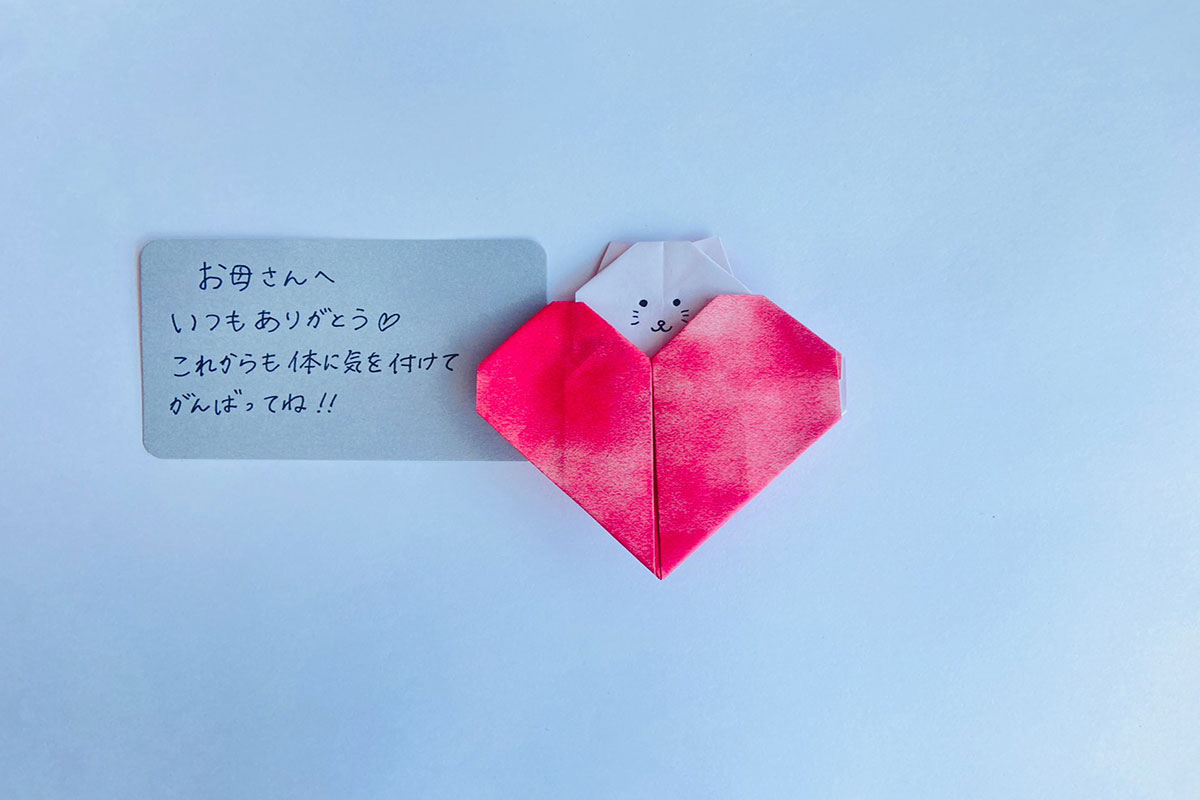 お母さんへ
いつもありがとう♡
これからも体に気を付けて
がんばってね!!